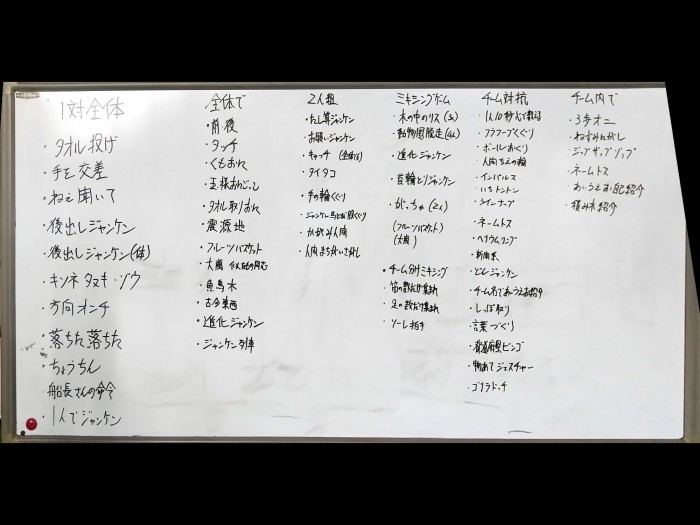 1対全体
・タオル投げ
・手を交差
・ねぇ聞いて
・後出しジャンケン
・後出しジャンケン(体)
・キツネ タヌキ・ゾウ
・方向オンチ
・落ちた落ちた
・ちょうちん
・船長さんの命令
・1人でジャンケン
全体で
・前後
・タッチ
・くもおに
・王様おにごっこ
・タオル取りおに
・震源地
・フルーツバスケット
・大嵐
・魚鳥木
・古今東西
・進化ジャンケン
・ジャンケン列車
2人組
・たし算ジャンケン
・お願いジャンケン
・キャッチ
・タイタコ
・手の輪くぐり
・ジャンケン馬とび股くぐり
・かがみ人間
・人間まちがいさがし
ミキシングゲーム
・木の中のリス(3人)
・動物園脱走(4人)
・進化ジャンケン
・首輪とりジャンケン
・がっちゃ(2人)
(フルーツバスケット)
(大嵐)
・チーム分けミキシング
・笛の数だけ集まれ
・足の数だけ集まれ
・ソーレ おすし
チーム対抗
・1人10秒
・フラフープくぐり
・ボールおくり
・人間ちえの輪
・インパルス
・いちトントン
・ラインナップ
・ネームトス
・ヘリウムリング
・新聞
・どんジャンケン
・チーム名であいうえお紹介
・しっぽ取り
・言葉づくり
・都道府県ビンゴ
・物あてジェスチャー
・ゴリラドッチ
チーム内で
・3歩オニ
・ねずみたがし
・ジップザップゾップ
・ネームトス
・あいうえお自己紹介
・積み木紹介